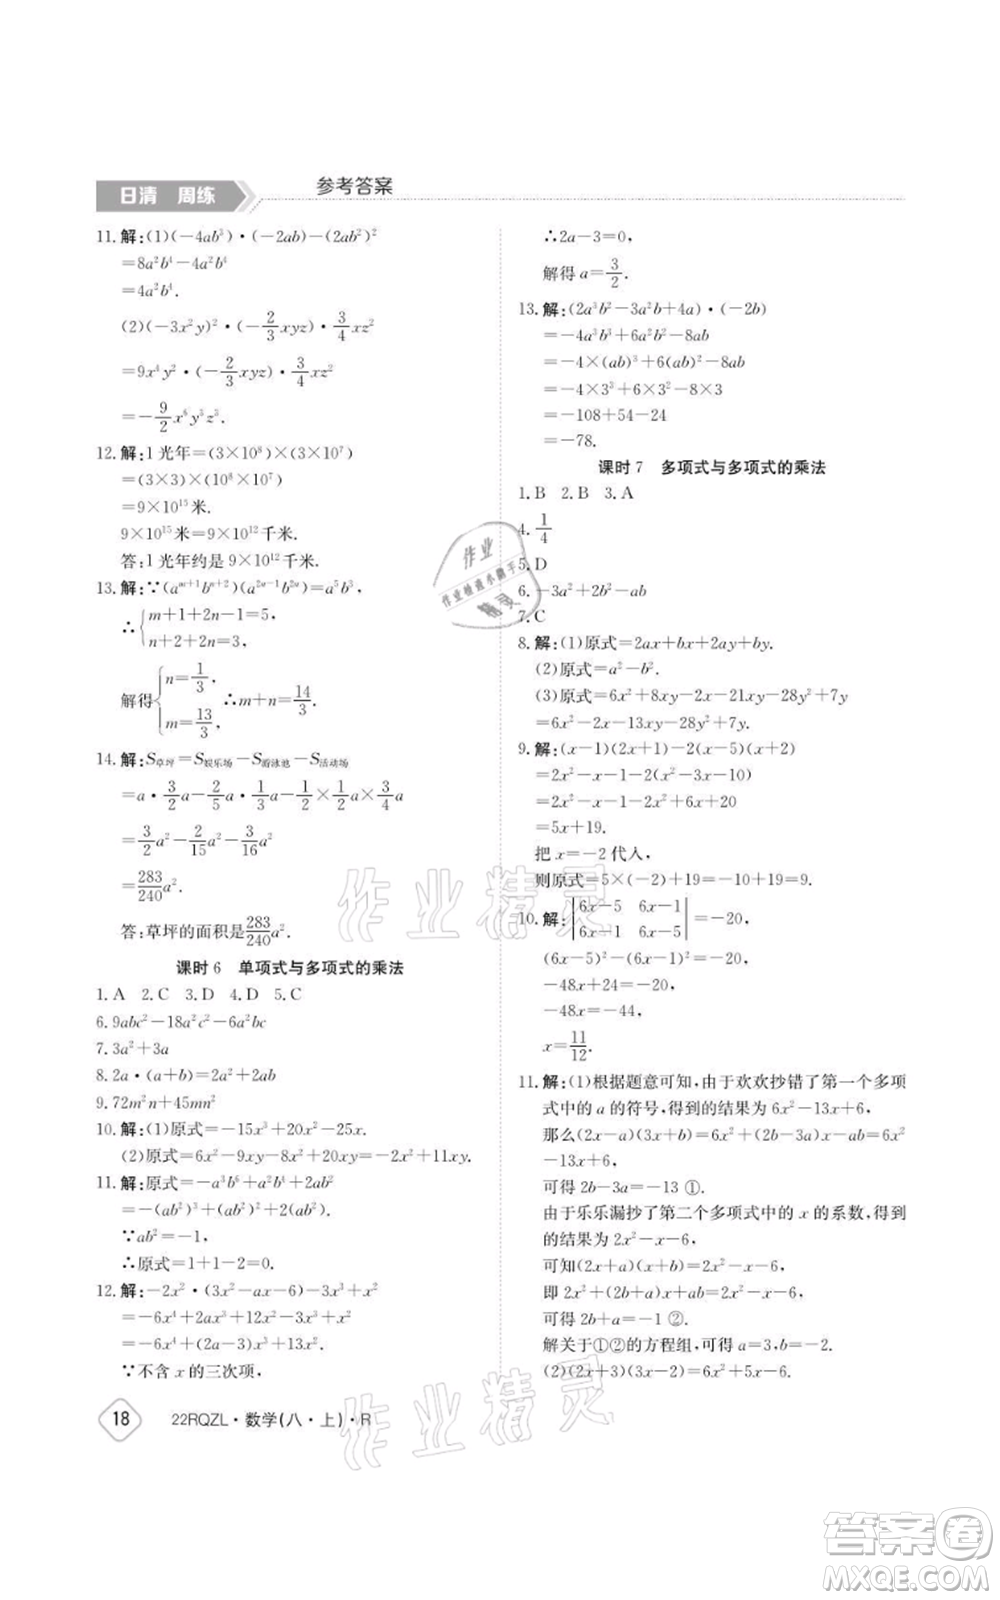 日清 周练 参考答案
11.解:(1)(-4ab³)·(-2ab)-(2ab²)²
=8a²b⁴-4a²b⁴
=4a²b⁴.
(2)(-3x²y)²·(-2/3xyz)·3/4xz²
=9x⁴y²·(-2/3xyz)·3/4xz²
=-9/2x⁶y³z³.
12.解:1光年=(3×10⁸)×(3×10⁷)
=(3×3)×(10⁸×10⁷)
=9×10¹⁵米.
9×10¹⁵米=9×10¹²千米.
答:1光年约是9×10¹²千米.
13.解:∵(aᵐ⁺¹bⁿ⁺²)(a²ⁿ⁻¹b²ⁿ)=a⁵b³,
∴{m+1+2n-1=5,
n+2+2n=3,
解得{n=1/3, m=13/3, ∴m+n=14/3.
14.解:S草坪=S娱乐场-S游泳池-S活动场
=a·3/2a-2/5a·1/3a-1/2×1/2a×3/4a
=3/2a²-2/15a²-3/16a²
=283/240a².
答:草坪的面积是283/240a².
课时6 单项式与多项式的乘法
1.A 2.C 3.D 4.D 5.C
6.9abc²-18a²c²-6a²bc
7.3a²+3a
8.2a·(a+b)=2a²+2ab
9.72m²n+45mn²
10.解:(1)原式=-15x³+20x²-25x.
(2)原式=6x²-9xy-8x²+20xy=-2x²+11xy.
11.解:原式=-a³b⁶+a²b⁴+2ab²
=-(ab²)³+(ab²)²+2ab²
∵ab²=-1,
∴原式=1+1-2=0.
12.解:-2x²·(3x²-ax-6)-3x³+x²
=-6x⁴+2ax³+12x²-3x³+x²
=-6x⁴+(2a-3)x³+13x²,
∵不含x的三次项,
∴2a-3=0,
解得a=3/2.
13.解:(2a³b²-3a²b+4a)·(-2b)
=-4a³b³+6a²b²-8ab
=-4×(ab)³+6(ab)²-8ab
=-4×3³+6×3²-8×3
=-108+54-24
=-78.
课时7 多项式与多项式的乘法
1.B 2.B 3.A
4.1/4
5.D
6.-3a²+2b²-ab
7.C
8.解:(1)原式=2ax+bx+2ay+by.
(2)原式=a²-b².
(3)原式=6x²+8xy-2x-21xy-28y²+7y
=6x²-2x-13xy-28y²+7y.
9.解:(x-1)(2x+1)-2(x-5)(x+2)
=2x²-x-1-2(x²-3x-10)
=2x²-x-1-2x²+6x+20
=5x+19.
把x=-2代人,
则原式=5×(-2)+19=-10+19=9.
10.解:|6x-5 6x-1|
|6x-1 6x-5|=-20,
(6x-5)²-(6x-1)²=-20,
-48x+24=-20,
-48x=-44,
x=11/12.
11.解:(1)根据题意可知,由于欢欢抄错了第一个多项
式中的a的符号,得到的结果为6x²-13x+6,
那么(2x-a)(3x+b)=6x²+(2b-3a)x-ab
=6x²-13x+6,
可得2b-3a=-13 ①.
由于乐乐漏抄了第二个多项式中的x的系数,得到
的结果为2x²-x-6,
可知(2x+a)(x+b)=2x²-x-6,
即2x²+(2b+a)x+ab=2x²-x-6,
可得2b+a=-1 ②.
解关于①②的方程组,可得a=3,b=-2.
(2)(2x+3)(3x-2)=6x²+5x-6.
18 22RQZL·数学(八·上)·R
作业
作业检查小助手
精灵
作业精灵
作业精灵
答案卷
MXQE.COM